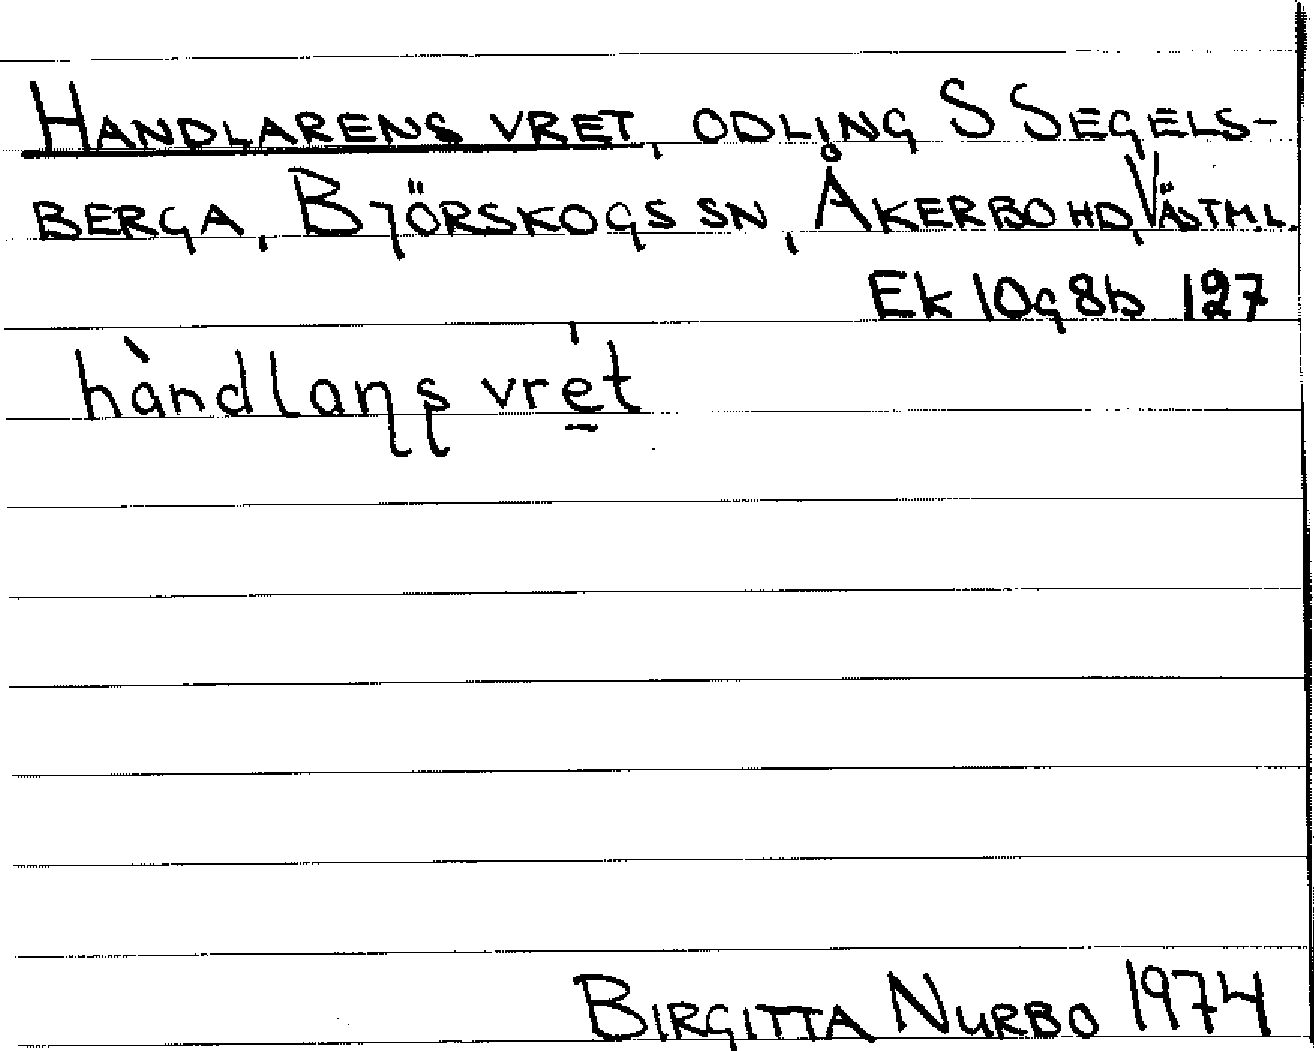 HANDLARENS VRET, ODLING S SEGELS-
BERGA, BJÖRSKOGS SN, ÅKERBO HD, VÄSTML.
Ek 10g8b 127
hàndlaɳʂ vre̠t
BIRGITTA NURBO 1974